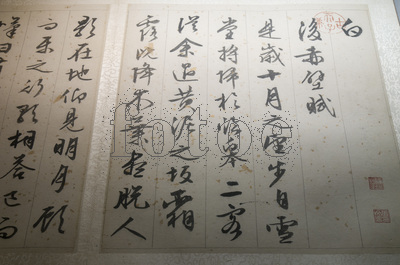 白
後赤壁賦
是歲十月之望步自雪
堂將歸於臨皋二客
從余過黃泥之坂霜
露既降木葉盡脫人
影在地仰見明月顧
而樂之行歌相答已而
fotoe